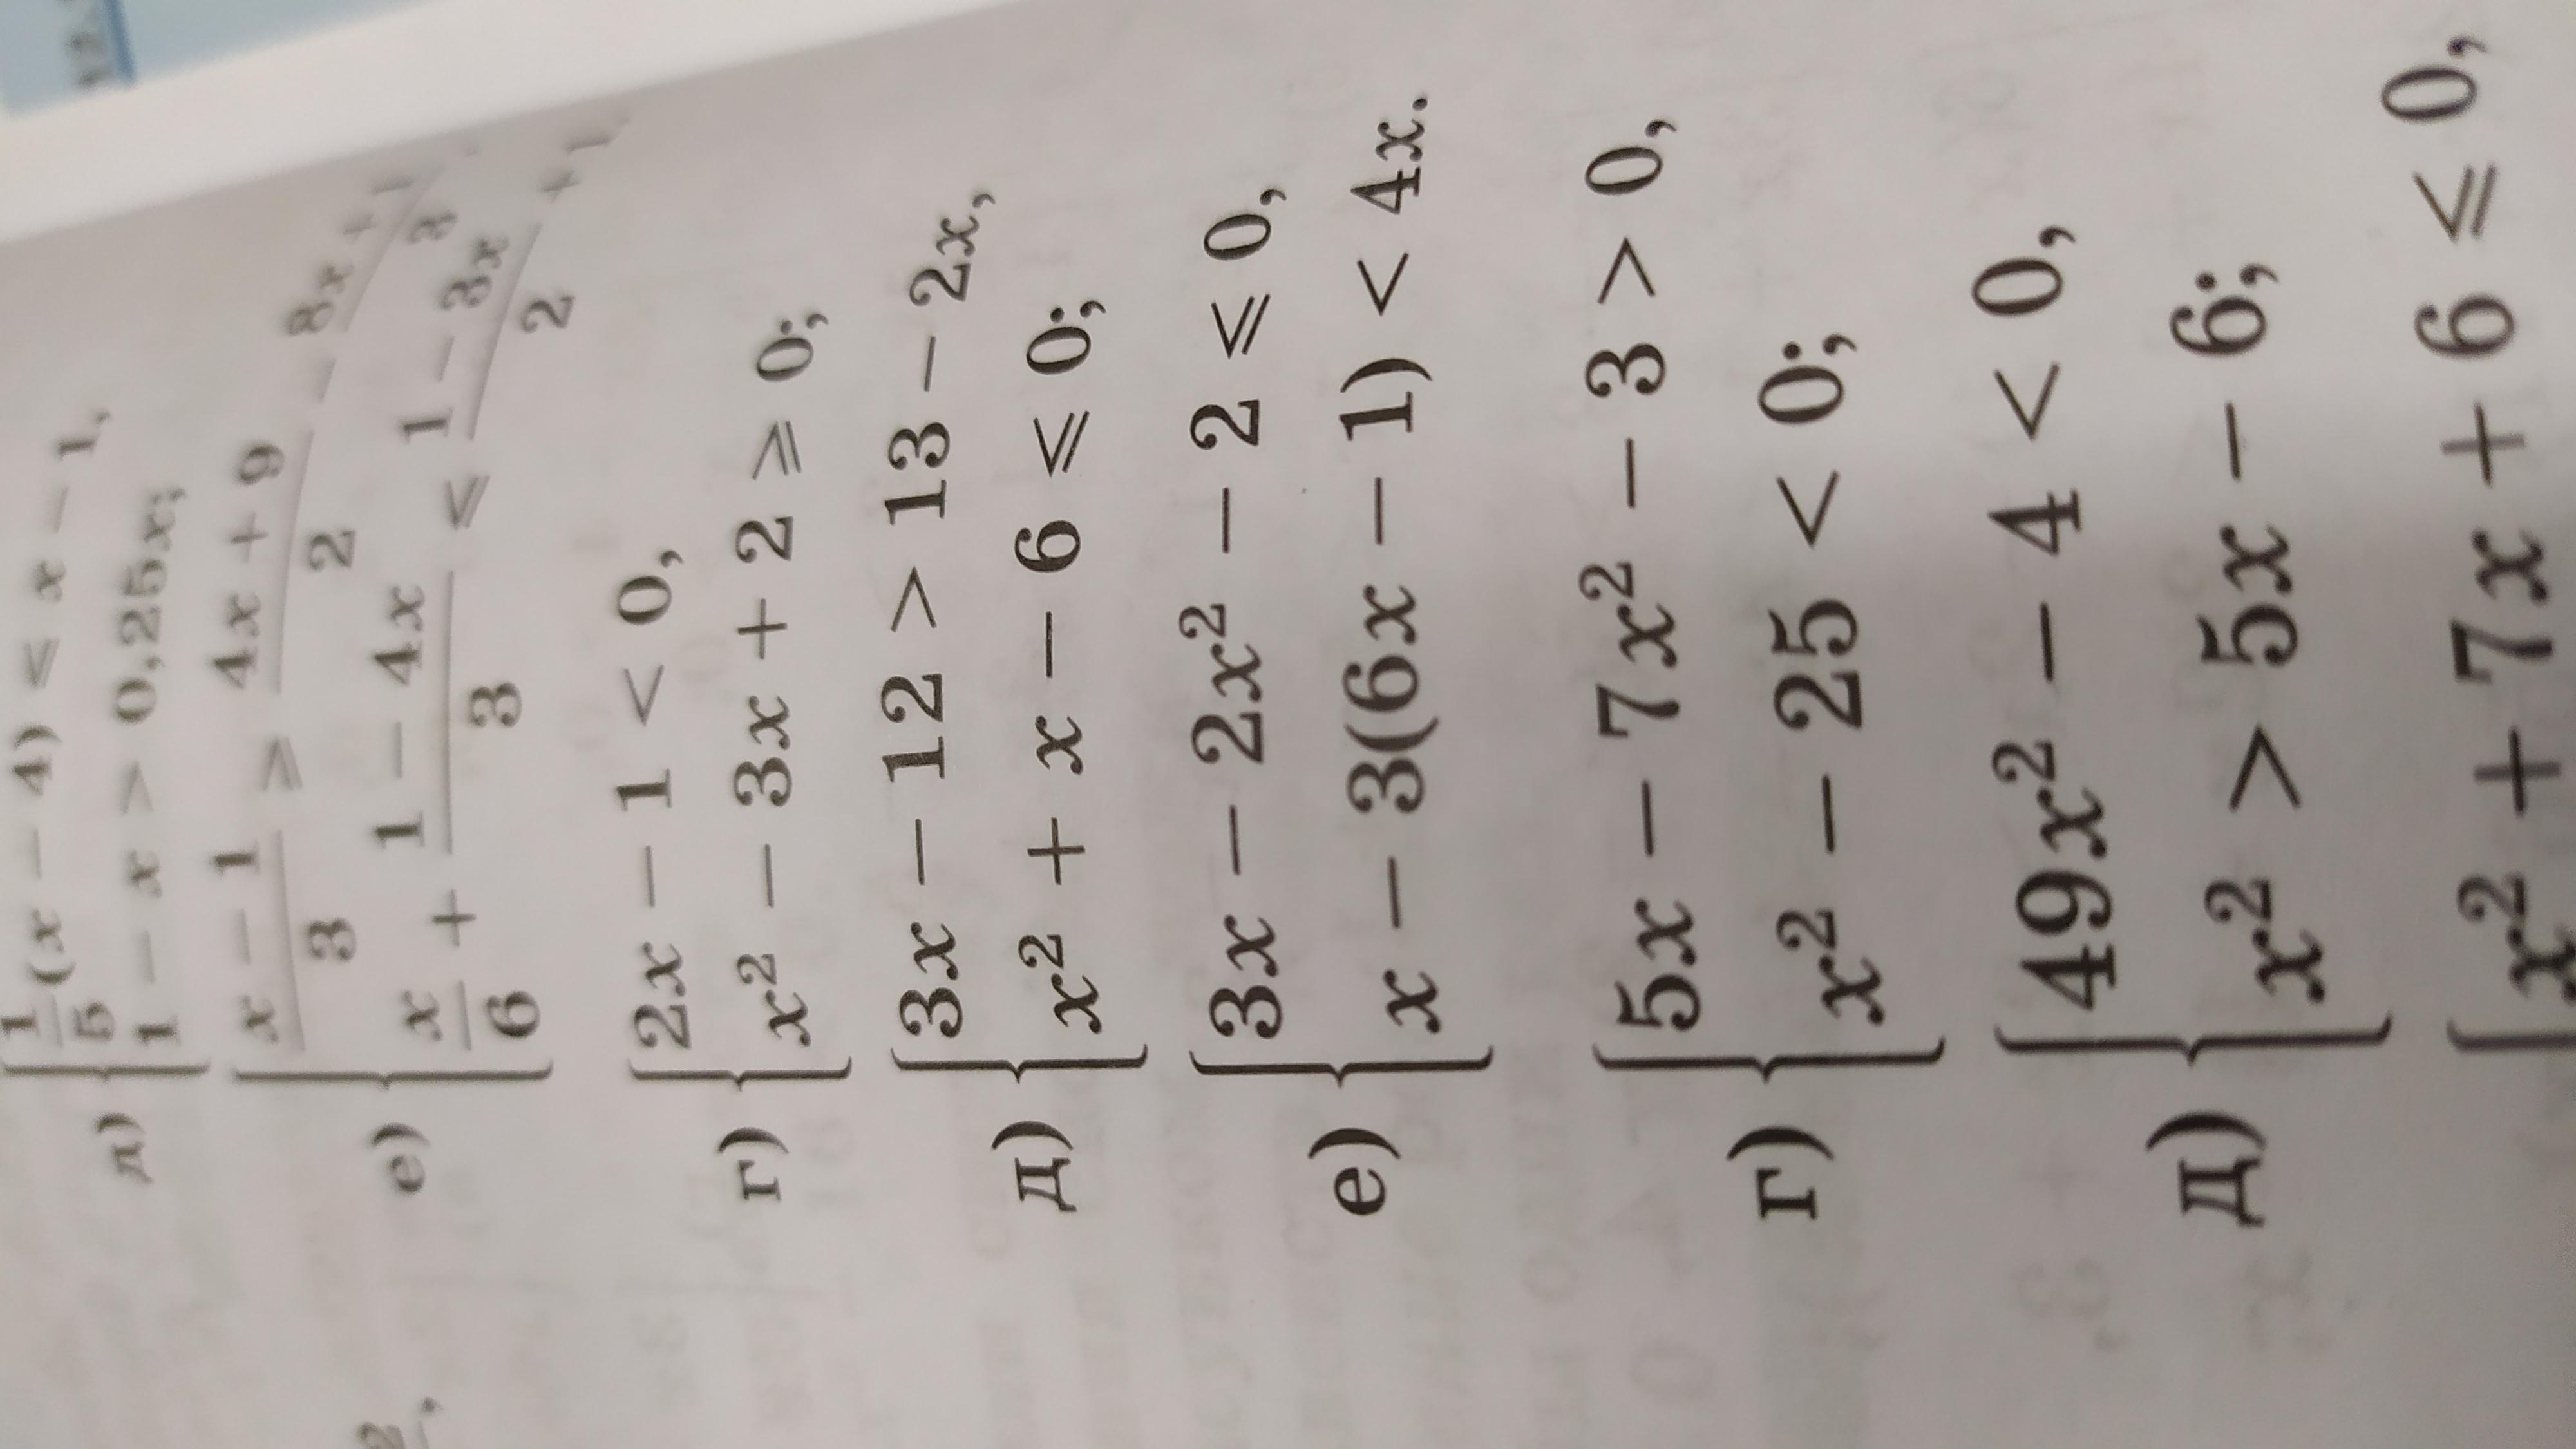 д) { 1/5(x − 4) ⩽ x − 1,
1 − x > 0,25x;
е) { (x − 1)/3 ⩾ (4x + 9)/2 − (8x + 1)/3,
x/6 + (1 − 4x)/3 ⩽ (1 − 3x)/2 + 1
г) { 2x − 1 < 0,
x² − 3x + 2 ⩾ 0;
д) { 3x − 12 > 13 − 2x,
x² + x − 6 ⩽ 0;
е) { 3x − 2x² − 2 ⩽ 0,
x − 3(6x − 1) < 4x.
г) { 5x − 7x² − 3 > 0,
x² − 25 < 0;
д) { 49x² − 4 < 0,
x² > 5x − 6;
{ x² + 7x + 6 ⩽ 0,